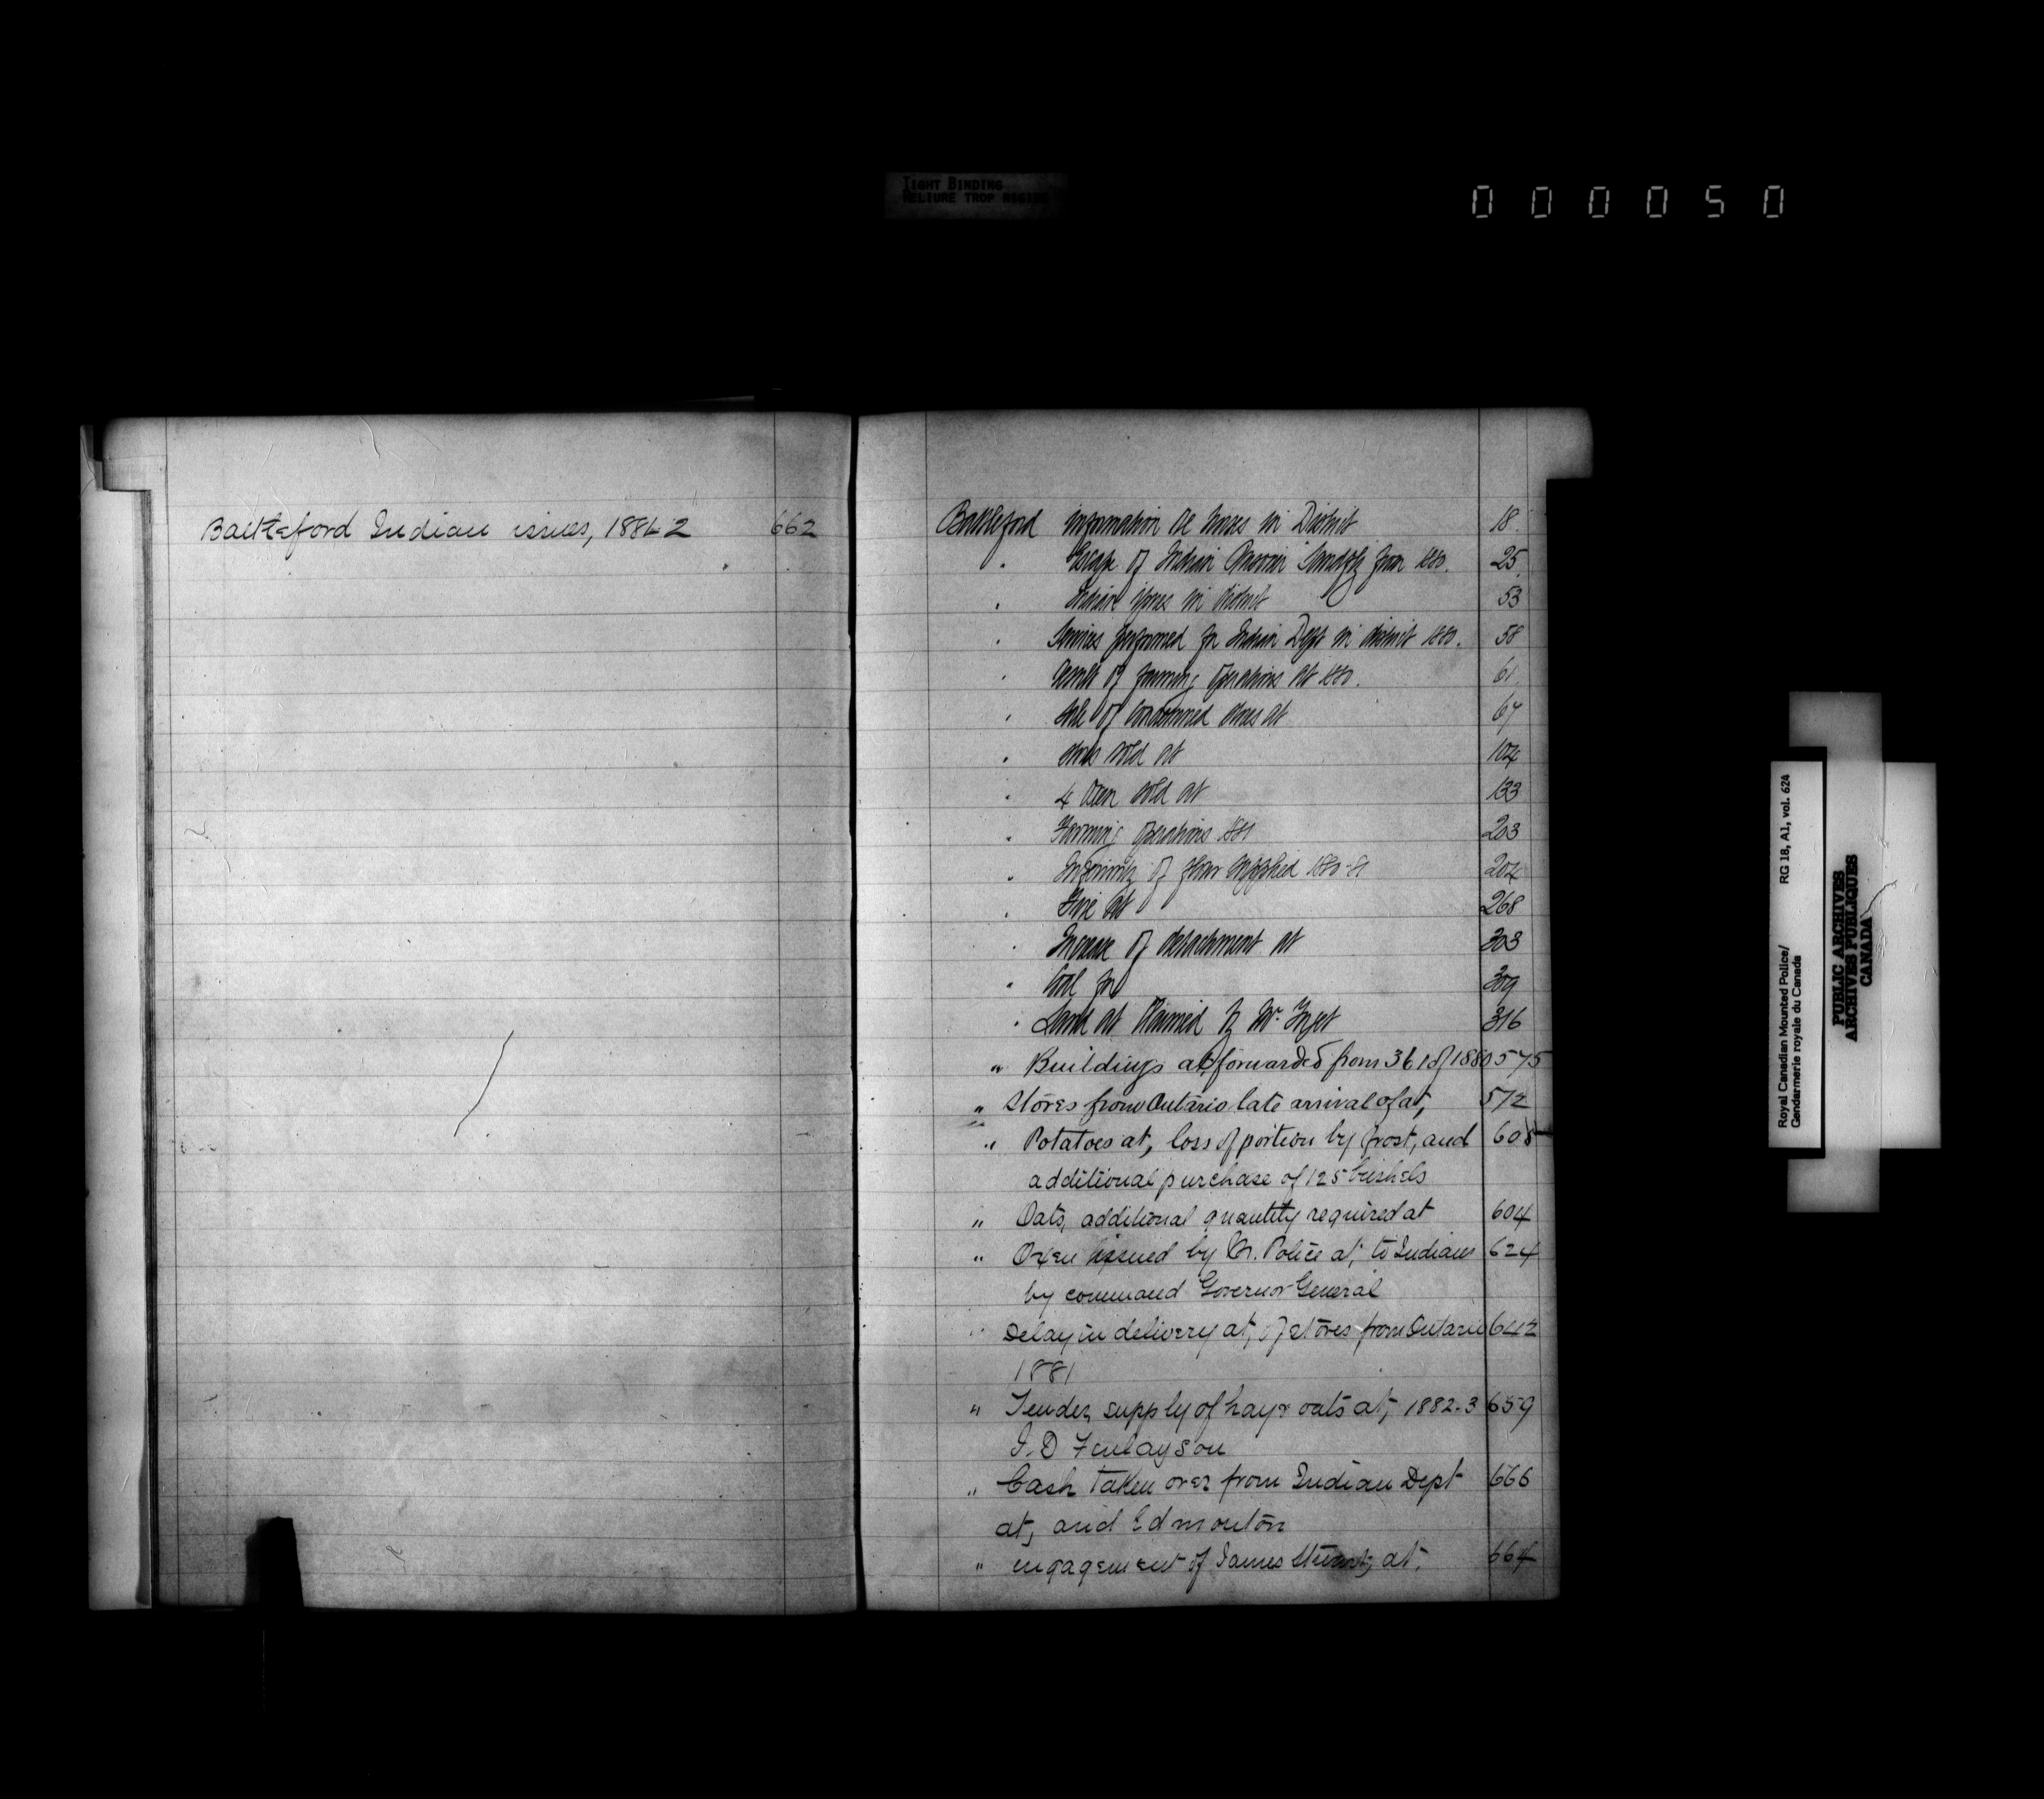 TIGHT BINDING
RELIURE TROP RIGIDE
000050
Battleford Indian issues, 1881-2 662
Battleford information re horses in District 18.
" Escape of Indian Prisoner from 1880. 25.
" Indian in District 53
" Services performed for Indian Dept in district 1880. 58
" Result of farming operations at 1880. 61.
" Sale of condemned stores at 67
" Stores sold at 104
" 4 Oxen sold at 133
" Farming operations 1881 203
" Inferiority of flour supplied 1880-81 204
" Fire at 268
" Increase of detachment at 303
" Coal for 309
" Land at claimed by Mr. 316
" Buildings at, forwarded from 361 of 1880 575
" Stores from Ontario late arrival of at, 572
" Potatoes at, loss of portion by frost, and 608
additional purchase of 125 bushels
" Oats, additional quantity required at 604
" Oxen issued by M. Police at, to Indians 624
by command Governor General
" Delay in delivery at, of stores from Ontario 642
1881
" Tender, supply of hay & oats at, 1882-3 659
J. D Finlayson
" Cash taken over from Indian Dept 666
at, and Edmonton
" engagement of James at, 664
Royal Canadian Mounted Police/ RG 18, A1, vol. 624
Gendarmerie royale du Canada
PUBLIC ARCHIVES
ARCHIVES PUBLIQUES
CANADA